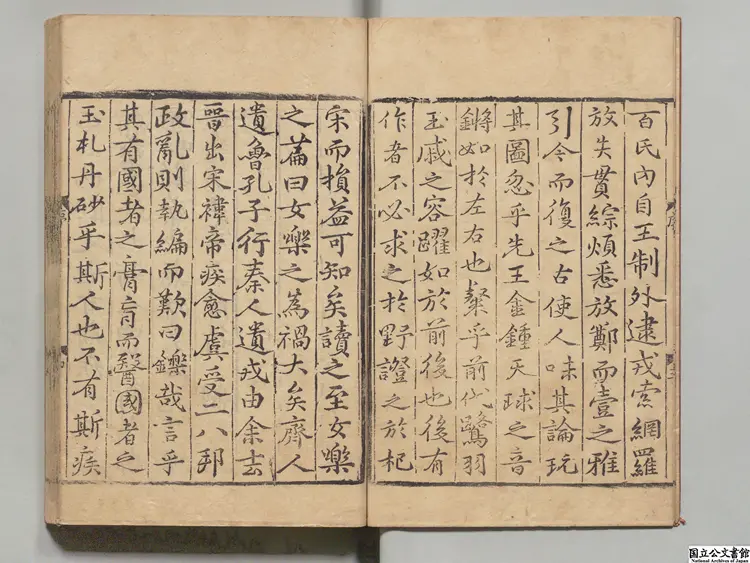 百氏內自王制外逮戎索網羅
放失貫綜煩悉放鄭而壹之雅
引今而復之古使人味其論玩
其圖忽乎先王金鍾天球之音
鏘如於左右也粲乎前代鷺羽
玉戚之容躍如於前後也後有
作者不必求之於野證之於杞
宋而損益可知矣讀之至女樂
之萹曰女樂之為禍大矣齊人
遺魯孔子行秦人遺戎由余去
晉出宋禕帝疾愈虞受二八邦
政亂則執編而歎曰鑠哉言乎
其有國者之膏肓而醫國者之
玉札丹砂乎斯人也不有斯疾
国立公文書館
National Archives of Japan